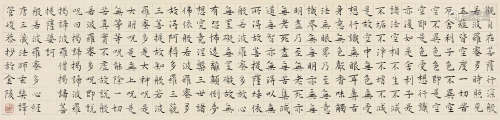 觀自在菩薩行深般
若波羅蜜多時照見
五蘊皆空度一切苦
厄舍利子色不異空
空不異色色即是空
空即是色受想行識
亦復如是舍利子是
諸法空相不生不滅
不垢不淨不增不減
是故空中無色無受
想行識無眼耳鼻舌
身意無色聲香味觸
法無眼界乃至無意
識界無無明亦無無
明盡乃至無老死亦
無老死盡無苦集滅
道無智亦無得以無
所得故菩提薩埵依
般若波羅蜜多故心
無罣礙無罣礙故無
有恐怖遠離顛倒夢
想究竟涅槃三世諸
佛依般若波羅蜜多
故得阿耨多羅三藐
三菩提故知般若波
羅蜜多是大神咒是
大明咒是無上咒是
無等等咒能除一切
苦真實不虛故說般
若波羅蜜多咒即說
咒曰揭諦揭諦波羅
揭諦波羅僧揭諦菩
提薩婆訶
般若波羅蜜多心經
唐三藏法師玄奘譯
管峻恭抄於金陵